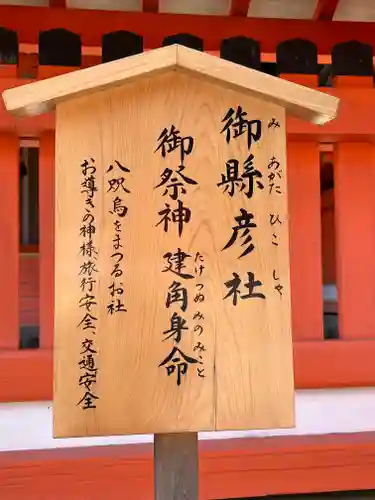 御縣彦社
み あがた ひこ しゃ
御祭神 建角身命
たけつぬみのみこと
八咫烏をまつるお社
お導きの神様旅行安全、交通安全